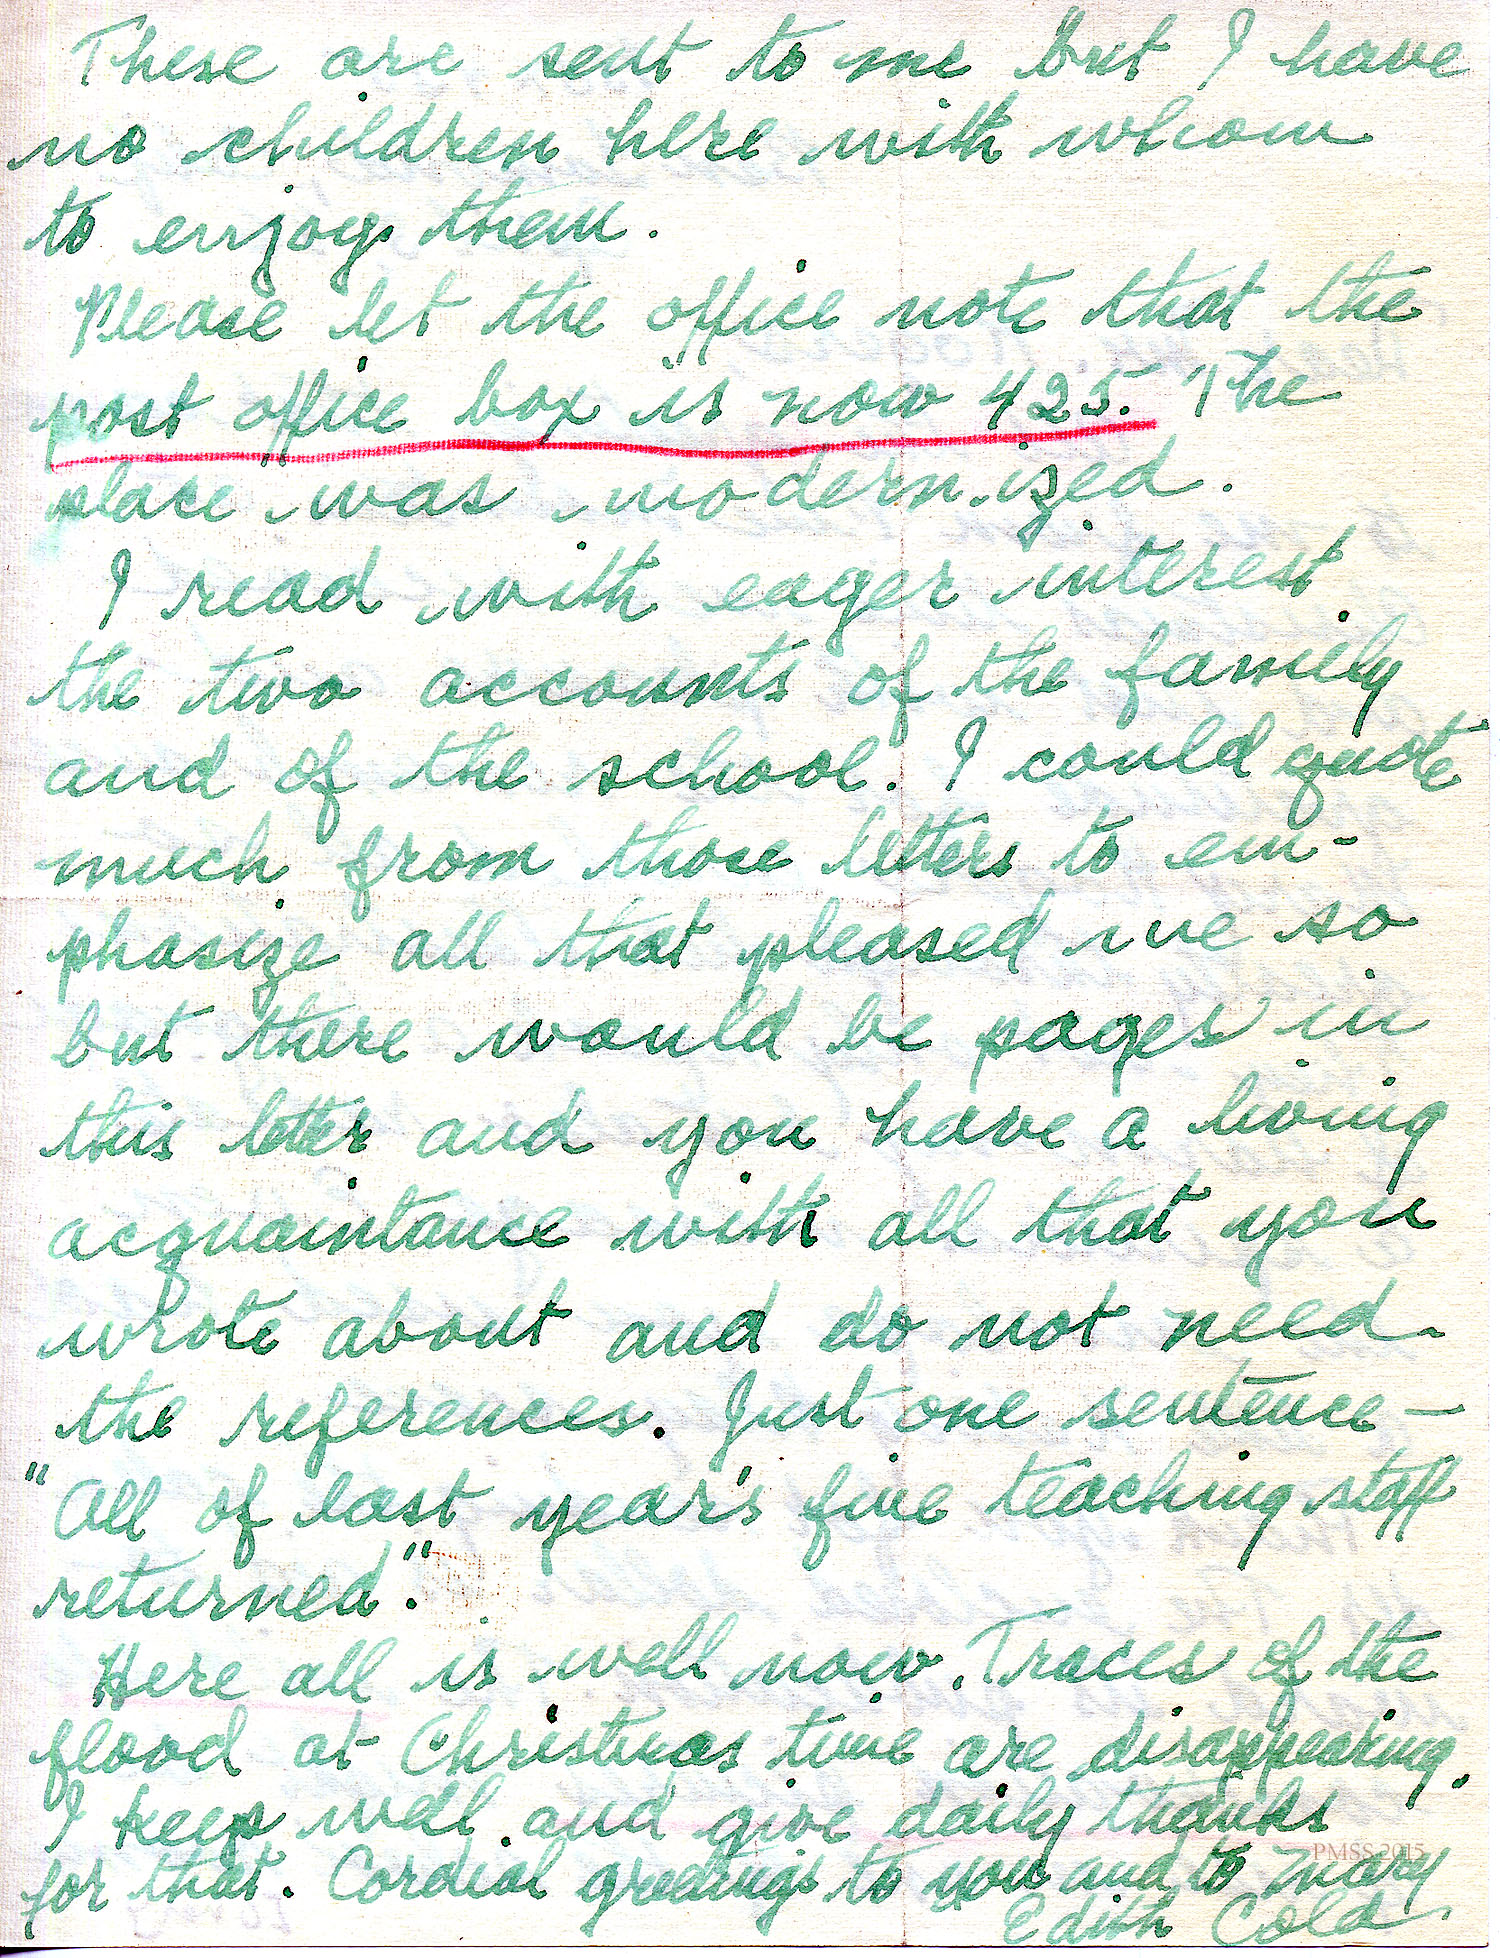 These are sent to me but I have
no children here with whom
to enjoy them.
Please let the office note that the
post office box is now 425. The
place was modernized.
I read with eager interest
the two accounts of the family
and of the school. I could quote
much from those letters to em-
phasize all that pleased me so
but there would be pages in
this letter and you have a living
acquaintance with all that you
wrote about and do not need
the references. Just one sentence—
"All of last year's fine teaching staff
returned."
Here all is well now. Traces of the
flood at Christmas time are disappearing.
I keep well and give daily thanks
PMSS 2015
for that. Cordial greetings to you and to Mary
Edith Cold.